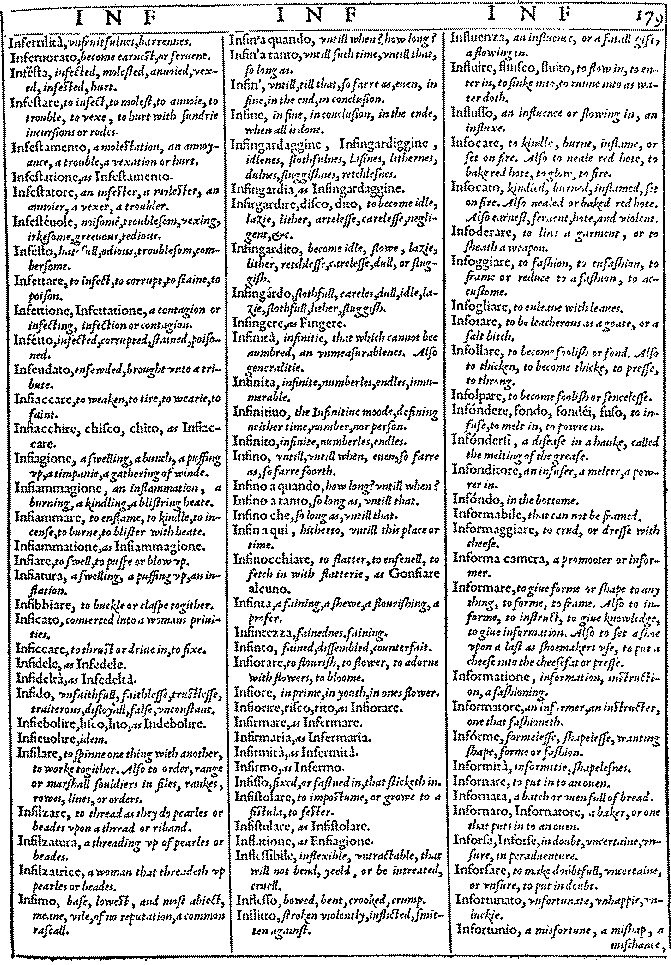 I N F
I N F
I N F
179
Infertilità, vnfruitfulnes, barrennes.
Infervorato, become earnest, or feruent.
Infésta, infected, molested, annoied, vex-
ed, infested, hurt.
Infestare, to infect, to molest, to annoie, to
trouble, to vexe, to hurt with sundrie
incursions or rodes.
Infestamento, a molestation, an annoy-
ance, a trouble, a vexation or hurt.
Infestatione, as Infestamento.
Infestatore, an infester, a molester, an
annoier, a vexer, a troubler.
Infestéuole, noisome, troublesom, vexing,
irkesome, greeuous, tedious.
Infésto, hatefull, odious, troublesom, com-
bersome.
Infettare, to infect, to corrupt, to staine, to
poison.
Infettione, Infettatione, a contagion or
infecting, infection or contagion.
Infétto, infected, corrupted, stained, poiso-
ned.
Infeudato, enfewded, brought vnto a tri-
bute.
Infiaccare, to weaken, to tire, to wearie, to
faint.
Infiacchire, chisco, chito, as Infiac-
care.
Infiagione, a swelling, a bunch, a puffing
vp, a timpanie, a gathering of winde.
Infiammagione, an inflammation, a
burning, a kindling, a blistring heate.
Infiammare, to enflame, to kindle, to in-
cense, to burne, to blister with heate.
Infiammatione, as Infiammagione.
Infiare, to swell, to puffe or blow vp.
Infiatura, a swelling, a puffing vp, an in-
flation.
Infibbiare, to buckle or claspe togither.
Inficato, conuerted into a womans priui-
ties.
Inficcare, to thrust or driue in, to fixe.
Infidele, as Infedele.
Infideltà, as Infedeltà.
Infido, vnfaithfull, faithlesse, trustlesse,
traiterous, disloyall, false, vnconstant.
Infiebolire, lisco, lito, as Indebolire.
Infieuolire, idem.
Infilare, to spinne one thing with another,
to worke togither. Also to order, range
or marshall souldiers in files, rankes,
rowes, lines, or orders.
Infilzare, to thread as they do pearles or
beades vpon a thread or riband.
Infilzatura, a threading vp of pearles or
beades.
Infilzatrice, a woman that threadeth vp
pearles or beades.
Infimo, base, lowest, and most abiect,
meane, vile, of no reputation, a common
rascall.
Infin'a quando, vntill when? how long?
Infin'a tanto, vntill such time, vntill that,
so long as.
Infin', vntill, till that, so farre as, euen, in
fine, in the end, in conclusion.
Infine, in fine, in conclusion, in the ende,
when all is done.
Infingardaggine, Infingardiggine,
idlenes, slothfulnes, lasines, lithernes,
dulnes, sluggishnes, retchlesnes.
Infingardia, as Infingardaggine.
Infingardire, disco, dito, to become idle,
lazie, lither, artelesse, carelesse, negli-
gent, &c.
Infingardito, become idle, slowe, lazie,
lither, retchlesse, carelesse, dull, or slug-
gish.
Infingárdo, slothfull, careles, dull, idle, la-
zie, slothfull, lither, sluggish.
Infingere, as Fingere.
Infinità, infinitie, that which cannot bee
numbred, an vnmeasurablenes. Also
generalitie.
Infinita, infinite, numberles, endles, innu-
merable.
Infinitiuo, the Infinitiue moode, defining
neither time, number, nor person.
Infinito, infinite, numberles, endles.
Infino, vntill, vntill when, euen, so farre
as, so farre foorth.
Infino a quando, how long? vntill when?
Infino a tanto, so long as, vntill that.
Infino che, so long as, vntill that.
Infin a qui, hitherto, vntill this place or
time.
Infinocchiare, to flatter, to enfenell, to
fetch in with flatterie, as Gonfiare
alcuno.
Infinta, a faining, a shewe, a flourishing, a
profer.
Infintezza, fainednes, faining.
Infinto, fained, dissembled, counterfait.
Infiorare, to flourish, to flower, to adorne
with flowers, to bloome.
Infiore, in prime, in youth, in ones flower.
Infiorire, risco, rito, as Infiorare.
Infirmare, as Infermare.
Infirmaria, as Infermaria.
Infirmità, as Infermità.
Infirmo, as Infermo.
Infisso, fixed, or fastned in, that sticketh in.
Infistolare, to impostume, or growe to a
fistula, to fester.
Infistulare, as Infistolare.
Inflatione, as Enfiagione.
Inflessibile, inflexible, vntractable, that
will not bend, yeeld, or be intreated,
cruell.
Inflesso, bowed, bent, crooked, crump.
Inflitto, stroken violently, inflicted, smit-
ten against.
Influenza, an influence, or a small gift,
a flowing in.
Influire, fluisco, fluito, to flow in, to en-
ter in, to sinke into, to runne into as wa-
ter doth.
Influsso, an influence or flowing in, an
influxe.
Infocare, to kindle, burne, inflame, or
set on fire. Also to neale red hote, to
bake red hote, to glow, to fire.
Infocato, kindled, burned, inflamed, set
on fire. Also nealed or baked red hote.
Also earnest, feruent, hote, and violent.
Infoderare, to line a garment, or to
sheath a weapon.
Infoggiare, to fashion, to enfashion, to
frame or reduce to a fashion, to ac-
custome.
Infogliare, to enleaue with leaues.
Infoiare, to be leacherous as a goate, or a
salt bitch.
Infollare, to become foolish or fond. Also
to thicken, to become thicke, to presse,
to throng.
Infolpare, to become foolish or sencelesse.
Infóndere, fondo, fondéi, fuso, to in-
fuse, to melt in, to powre in.
Infóndersi, a disease in a hauke, called
the melting of the grease.
Infonditore, an infuser, a melter, a pow-
rer in.
Infóndo, in the bottome.
Informabile, that can not be framed.
Informaggiare, to crud, or dresse with
cheese.
Informa camera, a promooter or infor-
mer.
Informare, to giue forme or shape to any
thing, to forme, to frame. Also to in-
forme, to instruct, to giue knowledge,
to giue information. Also to set a shoe
vpon a last as shoemakers vse, to put a
cheese into the cheesefat or presse.
Informatione, information, instructi-
on, a fashioning.
Informatore, an informer, an instructer,
one that fashioneth.
Infórme, formelesse, shapelesse, wanting
shape, forme or fashion.
Informità, informitie, shapelesnes.
Infornare, to put in to an ouen.
Infornata, a batch or ouen full of bread.
Infornaro, Infornatore, a baker, or one
that puts in to an ouen.
Inforsa, Inforse, in doubt, vncertaine, vn-
sure, in peraduenture.
Inforsare, to make doubtfull, vncertaine,
or vnsure, to put in doubt.
Infortunato, vnfortunate, vnhappie, vn-
luckie.
Infortunio, a misfortune, a mishap, a
mischance,